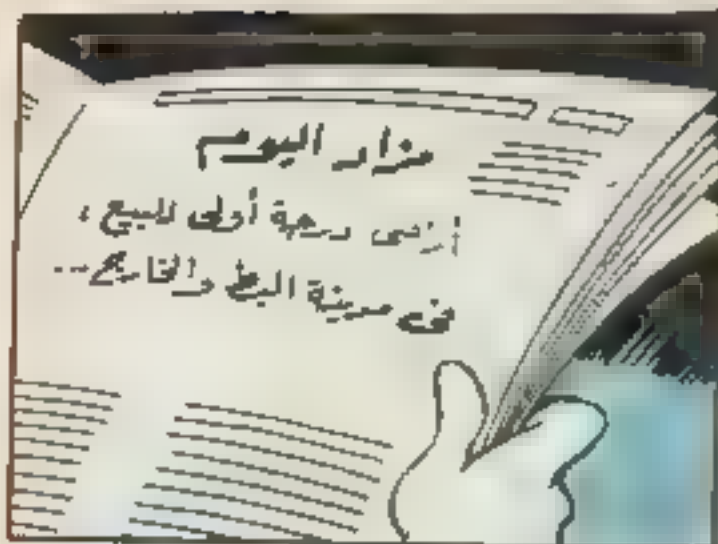 مزاد اليوم
أرض درجة أولى للبيع،
فى مدينة البط والخارج...